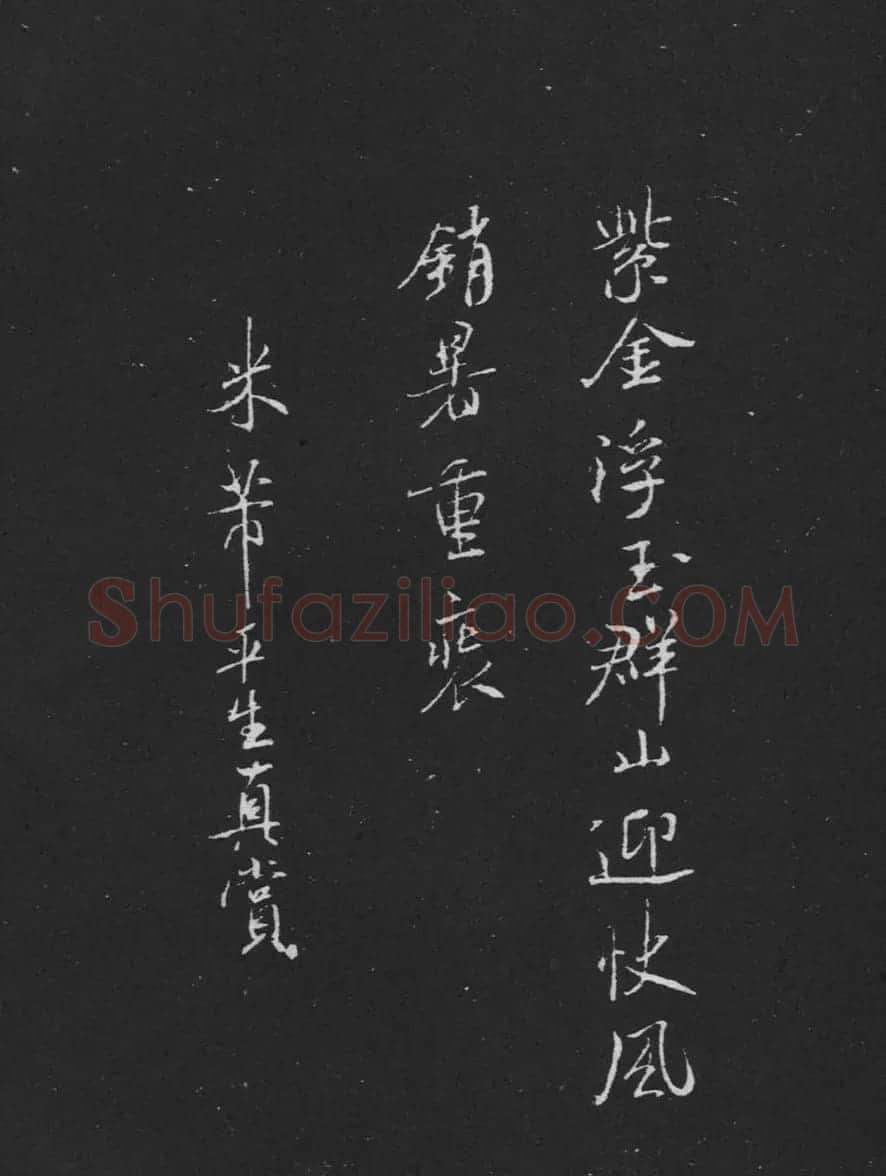 紫金浮玉群山迎快風
銷暑重裘
米芾平生真賞
Shufaziliao.COM